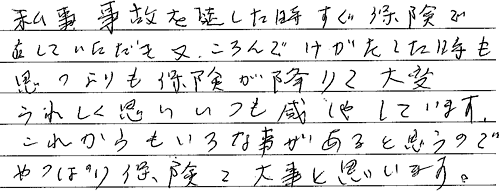 私事 事故を起した時すぐ保険で
直していただき又、ころんでけがをした時も
思つよりも保険が降りて大変
うれしく思いいつも感謝しています。
これからもいろな事があると思うので
やつぱり保険て大事と思います。